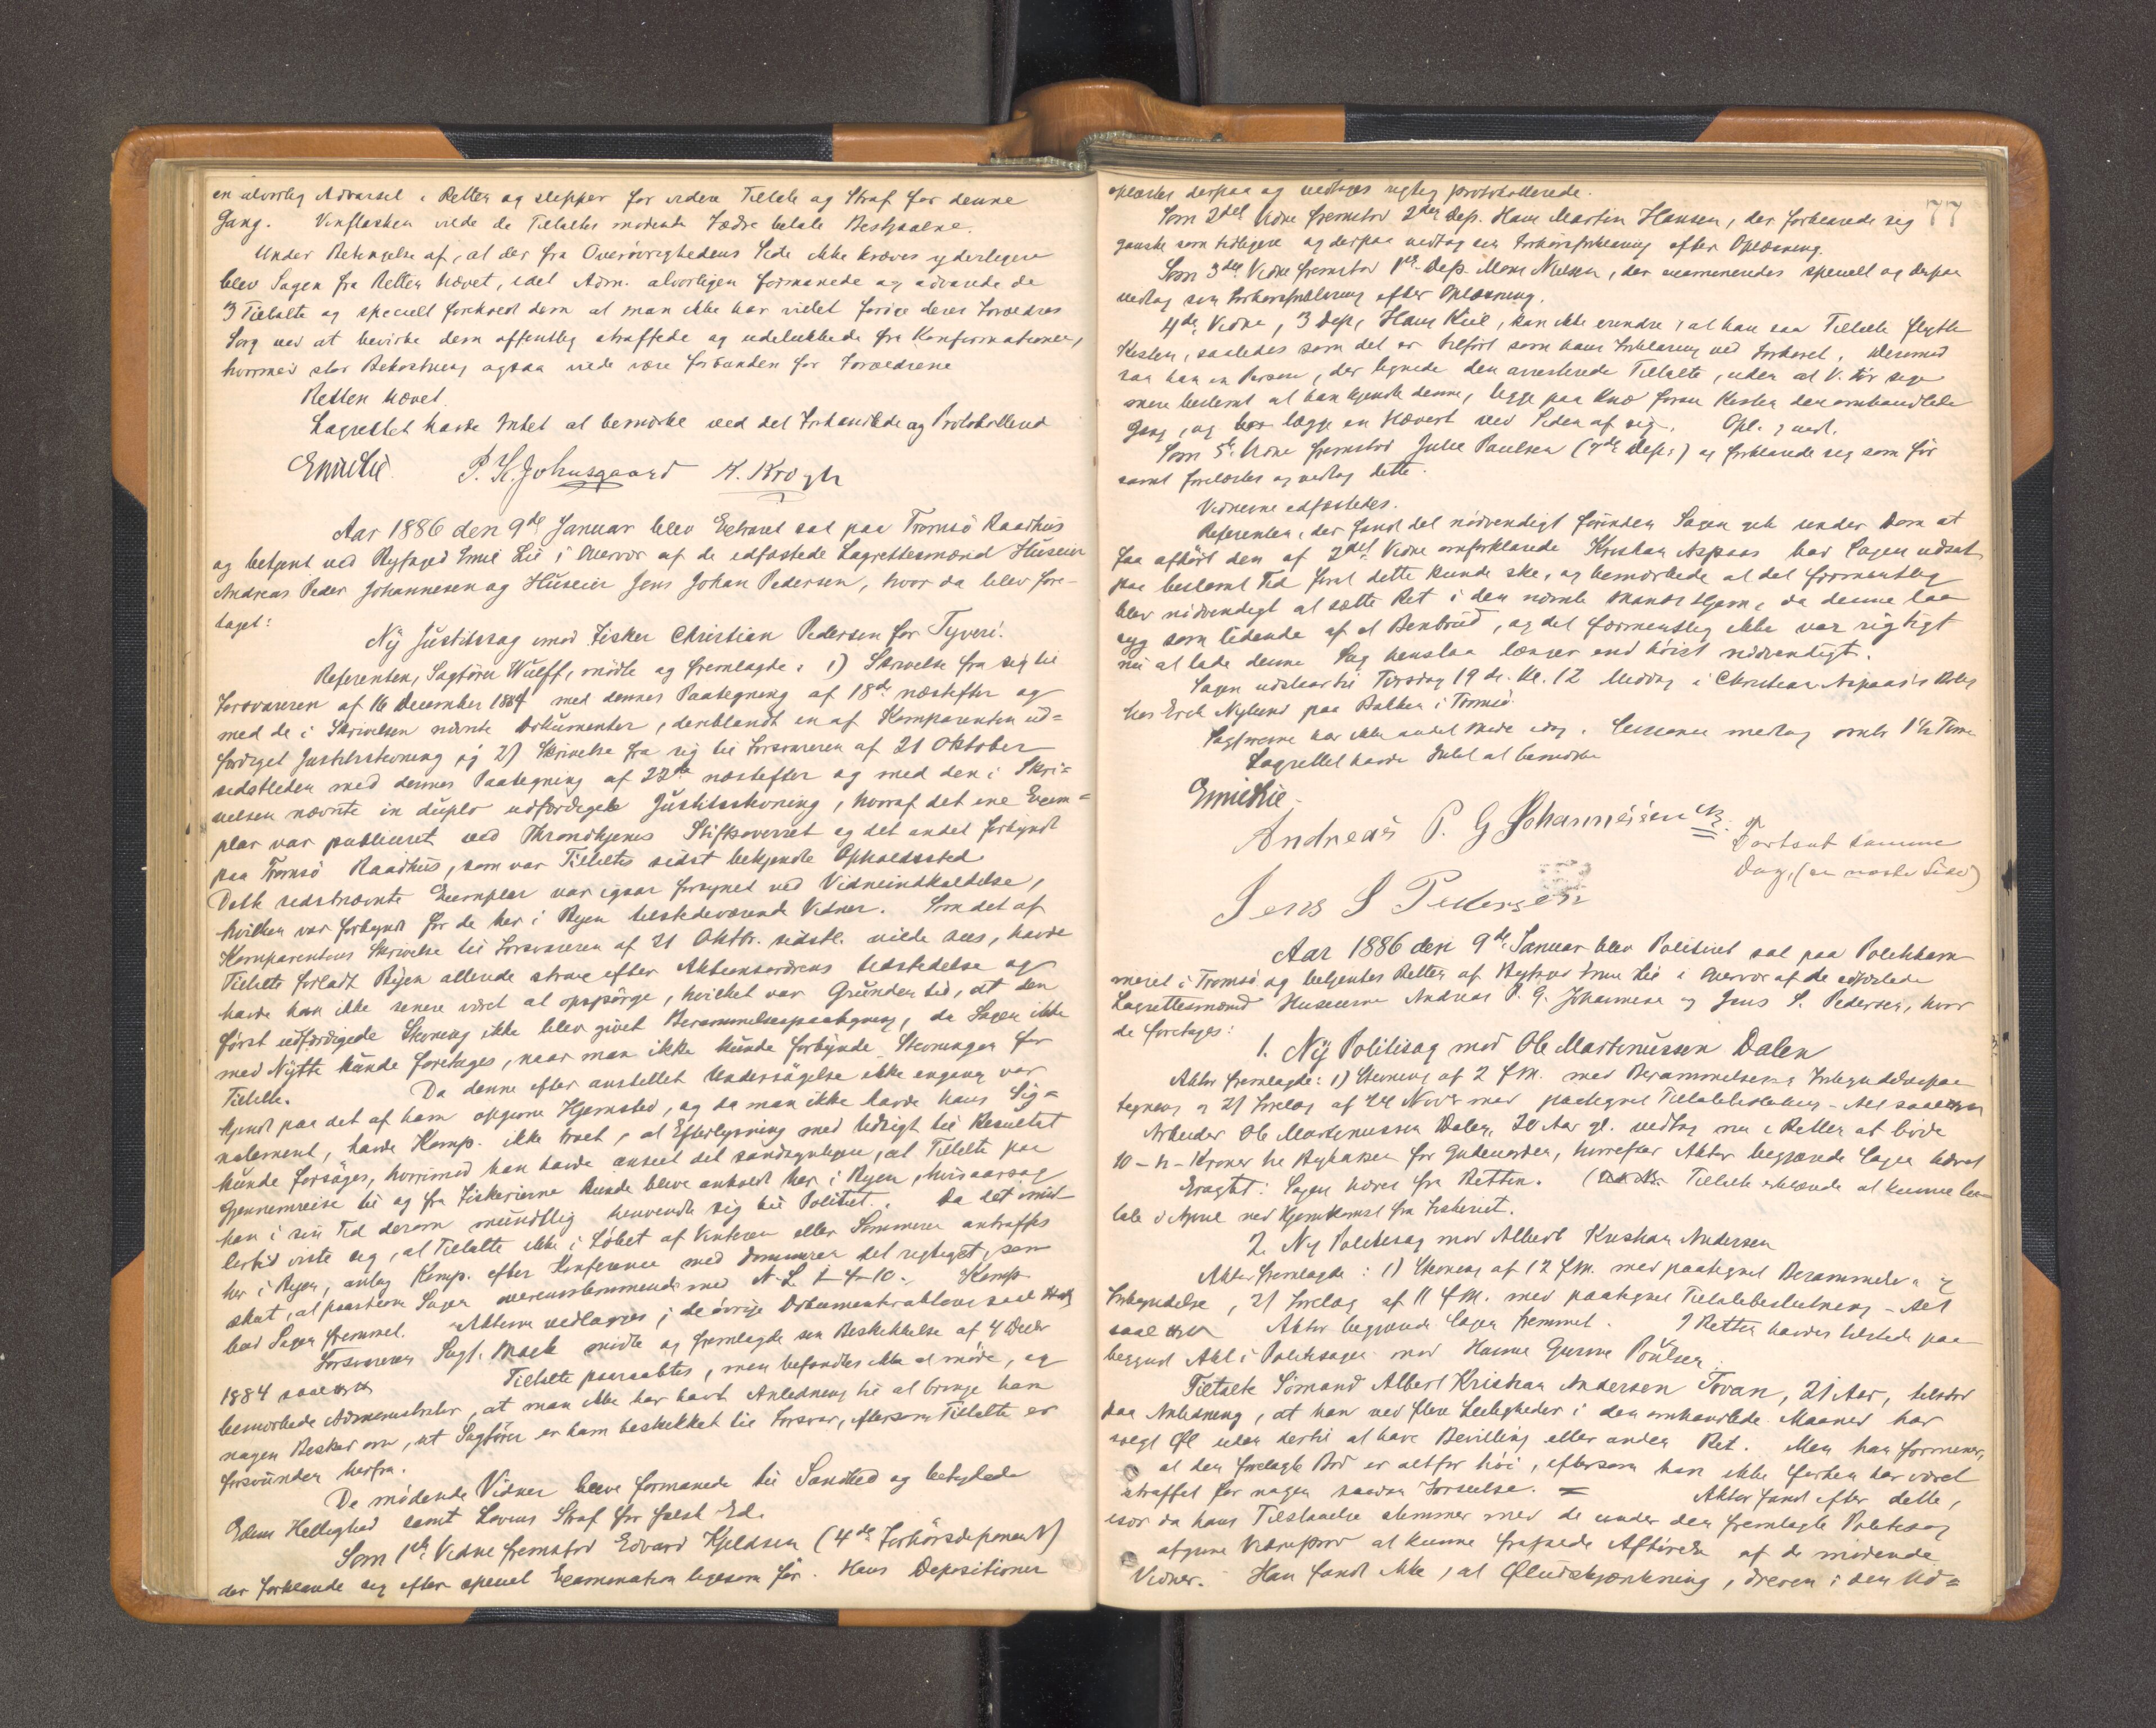 en alvorlig Advarsel i Retten og slipper for videre Tiltale og Straf for denne
Gang. Vinflasken vilde de Tiltaltes mødende Fædre betale Bestjaalne.
Under Betingelse af, at der fra Overøvrighedens Side ikke kræves yderligere
blev Sagen fra Retten hævet, idet Adm. alvorligen formanede og advarede de
3 Tiltalte og specielt foreholdt dem at man ikke har villet forøge deres Forældres
Sorg ved at bevirke dem offentlig straffede og udelukkede fra Konfirmationen,
hvormed stor Bekostning ogsaa vilde være forbunden for Forældrene
Retten hævet.
Lagrettet havde Intet at bemærke ved det Forhandlede og Protokollerede
Emil Lie P. H. Johnsgaard K. Krogh
Aar 1886 den 9de Januar blev Extraret sat paa Tromsö Raadhus
og betjent ved Byfoged Emil Lie i Overvær af de edfæstede Lagrettesmænd Huseier
Andreas Peder Johannesen og Huseier Jens Johan Pedersen, hvor da blev fore-
taget:
Ny Justitssag imod Fisker Christian Pedersen for Tyveri.
Referenten, Sagfører Wulff, mødte og fremlagde: 1) Skrivelse fra sig til
Forsvareren af 16 December 1884 med dennes Paategning af 18de næstefter og
med de i Skrivelsen nævnte Dokumenter, deriblandt en af Komparenten ud=
færdiget Justitsstevning og 2) Skrivelse fra sig til Forsvareren af 21 Oktober
sidstleden med dennes Paategning af 22de næstefter og med den i Skri=
velsen nævnte in duplo udfærdigede Justitsstevning, hvoraf det ene Exem=
plar var publiceret ved Throndhjems Stiftsoverret og det andet forkyndt
paa Tromsö Raadhus, som var Tiltaltes sidst bekjendte Opholdssted
Dette sidstnævnte Exemplar var ogsaa forsynet ved Vidneindkaldelse,
hvilken var forkyndt for de her i Byen tilstedeværende Vidner. Som det af
Komparentens Skrivelse til Forsvareren af 21 Oktbr. sidstl. vilde sees, havde
Tiltalte forladt Byen allerede strax efter Aktionsordrens Udstedelse og
havde han ikke senere været at opspørge, hvilket var Grunden til, at den
først udfærdigede Stevning ikke blev givet Berammelsespaategning, da Sagen ikke
med Nytte kunde foretages, naar man ikke kunde forkynde Stevningen for
Tiltalte. Da denne efter anstillet Undersøgelse ikke engang var
kjendt paa det af ham opgivne Hjemsted, og da man ikke havde hans Sig=
nalement, havde Komp. ikke troet, at Efterlysning med Udsigt til Resultat
kunde forsøges, hvorimod han havde anseet det sandsynligere, at Tiltalte paa
Gjennemreise til og fra Fiskerierne kunde blive anholdt her i Byen, hvisaarsag
han i sin Tid derom mundtlig henvendte sig til Politiet. Da det imid
lertid viste sig, at Tiltalte ikke i Løbet af Vinteren eller Sommeren antraffes
her i Byen, antog Komp. efter Konferance med Dommeren det rigtigst, som
sket, at paastevne Sagen overensstemmende med N. L. 1-4-10. Komp.
bad Sagen fremmet. Akterne vedlagdes; de øvrige Dokumenter
Forsvareren Sagf. Mack mødte og fremlagde sin Beskikkelse af 4 Decbr
1884 Tiltalte paaraabtes, men befandtes ikke at møde, og
bemærkede Administrator, at man ikke har havt Anledning til at bringe ham
nogen Besked om, at Sagfører er ham beskikket til Forsvar, eftersom Tiltalte er
forsvunden herfra.
De mødende Vidner bleve formanede til Sandhed og betydede
Edens Hellighed samt Lovens Straf for falsk Ed.
Som 1ste Vidne fremstod Edvard Kjeldsen (4de Forhørsdeponent)
der forklarede sig efter speciel Examination ligesom før. Hans Depositioner
77
oplæstes derpaa og vedtoges rigtig protokollerede.
Som 2det Vidne fremstod 2den Dep. Hans Martin Hansen, der forklarede sig
ganske som tidligere og derpaa vedtog sin Forhørsforklaring efter Oplæsning.
Som 3die Vidne fremstod 1ste Dep. Mons Nielsen, der examineredes specielt og derpaa
vedtog sin Forhørsforklaring efter Oplæsning.
4de Vidne, 3 Dep, Hans Kiil, kan ikke erindre, at han saa Tiltalte flytte
Kisten, saaledes som det er tilført som hans Forklaring ved Forhøret. Derimod
saa han en Person, der lignede den arresterede Tiltalte, uden at V. tør sige
mere bestemt at han kjendte denne, ligge paa Knæ foran Kisten den omhandlede
Gang, og lægge en Hævert ved Siden af sig. Opl. & vedt.
Som 5te Vidne fremstod Julie Paulsen (7de Dep:) og forklarede sig som før
samt forelæstes og vedtog dette.
Vidnerne edfæstedes.
Referenten, der fandt det nødvendigt førinden Sagen gik under Dom at
faa afhørt den af 2det Vidne omforklarede Kristian Aspaas bad Sagen udsat
paa bestemt Tid forat dette kunde ske, og bemærkede at det formentlig
blev nødvendigt at sætte Ret i den nævnte Mands Hjem, da denne laa
syg som lidende af et Benbrud, og det formentlig ikke var rigtigt
nu at lade denne Sag henstaa længer end høist nødvendigt.
Sagen udstaar til Tirsdag 19 ds. Kl. 12 Middag i Christian Aspaas's Bolig
hos Erik Nylund paa Bakken i Tromsö
Sagførerne har ikke andet Møde idag. Sessionen medtog omtr 1½ Time
Lagrettet havde Intet at bemærke
Emil Lie
Andreas P. G Johannesen
Fortsat samme
Dag, (se næste Side)
Jens S Pedersen
Aar 1886 den 9de Januar blev Politiret sat paa Politikam
meret i Tromsö og betjentes Retten af Byfoged Emil Lie i Overvær af de edfæstede
Lagrettesmænd Huseierne Andreas P. G. Johannesen og Jens S. Pedersen, hvor
da foretages:
1. Ny Politisag mod Ole Martinussen Dalen
Aktor fremlagde: 1) Stevning af 2 f.M. med Berammelses og Forkyndelsespaa
tegning og 2) Forelæg af 24 Novbr med paategnet Tiltalebeslutning -
Arbeider Ole Martinussen Dalen, 20 Aar gl. vedtog nu i Retten at bøde
10 - ti - Kroner til Bykassen for Gadeuorden, hvorefter Aktor begjærede Sagen hævet
Eragtet: Sagen hæves fra Retten. ( Tiltalte erklærede at kunne be-
tale i April ved Hjemkomst fra Fiskeriet.
2. Ny Politisag mod Albert Kristian Andersen
Aktor fremlagde: 1) Stevning af 12 f.M. med paategnet Berammelse og
Forkyndelse, 2) Forelæg af 11 f.M. med paategnet Tiltalebeslutning -
Aktor begjærede Sagen fremmet. I Retten havdes tilstede paa
begyndt Akt i Politisagen mod Hanne Gurine Poulsen.
Tiltalte Sømand Albert Kristian Andersen Tovan, 21 Aar, tilstod
paa Anledning, at han ved flere Leiligheder i den omhandlede Maaned har
solgt Øl uden dertil at have Bevilling eller anden Ret. Men han formener,
at den forelagte Bod er altfor høi, eftersom han ikke forhen har været
straffet for nogen saadan Forseelse. = Aktor fandt efter dette,
især da hans Tilstaaelse stemmer med de under den fremlagte Politisag
afgivne Vidneprov at kunne frafalde Afhørelse af de mødende
Vidner. Han fandt ikke, at Øludskjænkning, dreven i den Ud=